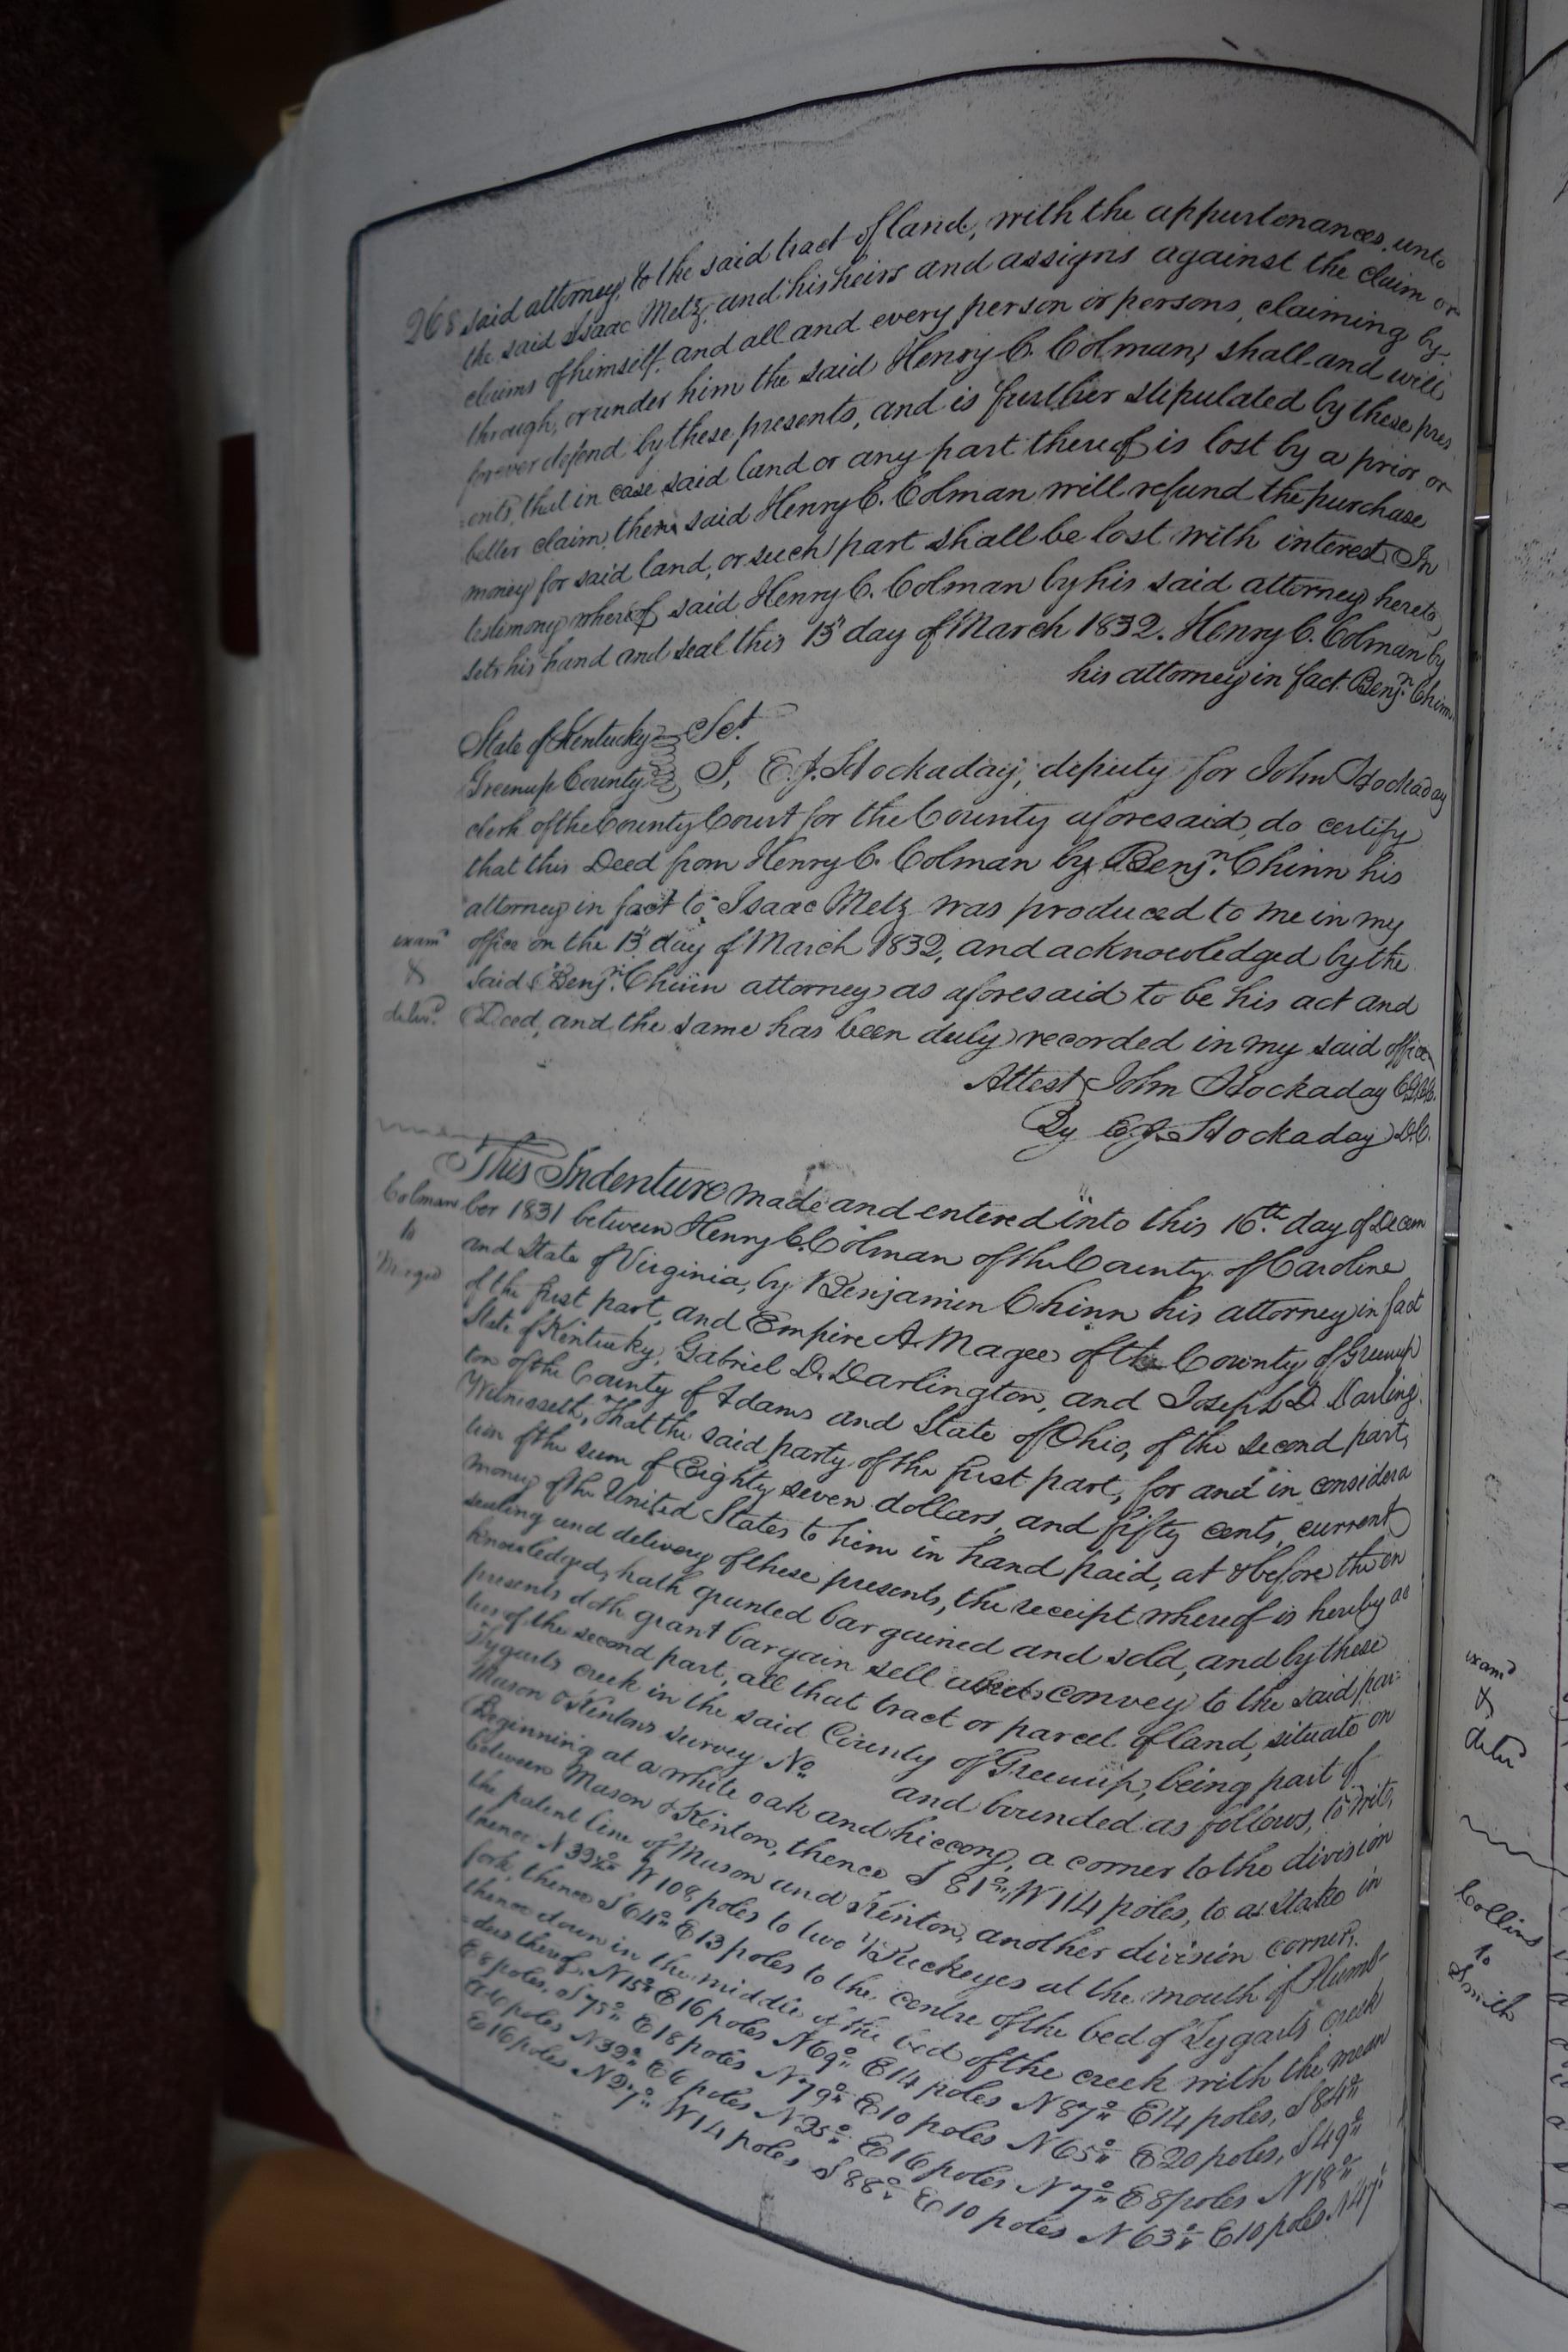 268 said attorney, to the said tract of land, with the appurtenances, unto
the said Isaac Metz, and his heirs and assigns against the claim or
claims of himself, and all and every person or persons, claiming by,
through, or under him the said Henry C. Colman, shall and will
forever defend by these presents, and is further stipulated by these pres
ents, that in case said land or any part thereof is lost by a prior or
better claim, then said Henry C. Colman will refund the purchase
money for said land, or such part shall be lost with interest. In
testimony whereof said Henry C. Colman by his said attorney hereto
sets his hand and seal this 13" day of March 1832. Henry C. Colman by
his attorney in fact Benjn. Chinn
State of Kentucky Sct.
Greenup County I, E. J. Hockaday, deputy for John Hockaday
clerk of the County Court for the County aforesaid, do certify
that this Deed from Henry C. Colman by Benjn. Chinn his
attorney in fact to Isaac Metz was produced to me in my
examd office on the 13" day of March 1832, and acknowledged by the
& said Benjn. Chinn attorney as aforesaid to be his act and
delivd. Deed, and the same has been duly recorded in my said office
Attest John Hockaday
By E. J. Hockaday D.C.
This Indenture made and entered into this 16th. day of Decem
Colman ber 1831 between Henry C. Colman of the County of Caroline
to and State of Virginia, by Benjamin Chinn his attorney in fact
of the first part, and Empire A. Magee of the County of Greenup
State of Kentucky, Gabriel D. Darlington, and Joseph D. Darling
ton of the County of Adams and State of Ohio, of the second part,
Witnesseth, That the said party of the first part, for and in considera
tion of the sum of Eighty seven dollars, and fifty cents, current
money of the United States to him in hand paid, at & before the en
sealing and delivery of these presents, the receipt whereof is hereby ac
knowledged, hath granted bargained and sold, and by these
presents doth grant bargain sell convey to the said par-
ties of the second part, all that tract or parcel of land, situate on
Tygarts creek in the said County of Greenup, being part of
Mason & Kentons survey No and bounded as follows, to wit,
Beginning at a white oak and hiccory, a corner to the division
between Mason & Kenton, thence S 81° W 114 poles, to a Stake in
the patent line of Mason and Kenton, another division corner.
thence N 39½° W 108 poles to two Buckeyes at the mouth of Plumb-
fork, thence S 64° E 13 poles to the centre of the bed of Tygarts creek
thence down in the middle of the bed of the creek with the mean
ders thereof, N 15° E 16 poles N 69° E 14 poles N 87° E 14 poles, S 84°
E 8 poles, S 75° E 18 poles N 79° E 10 poles N 65° E 20 poles, S 49°
E 6 poles N 39° E 6 poles N 25° E 16 poles N 7° E 8 poles N 18°
E 16 poles N 27° W 14 poles S 88° E 10 poles N 63° E 10 poles. N 47°
examd
&
delivd
Collins
to
Smith